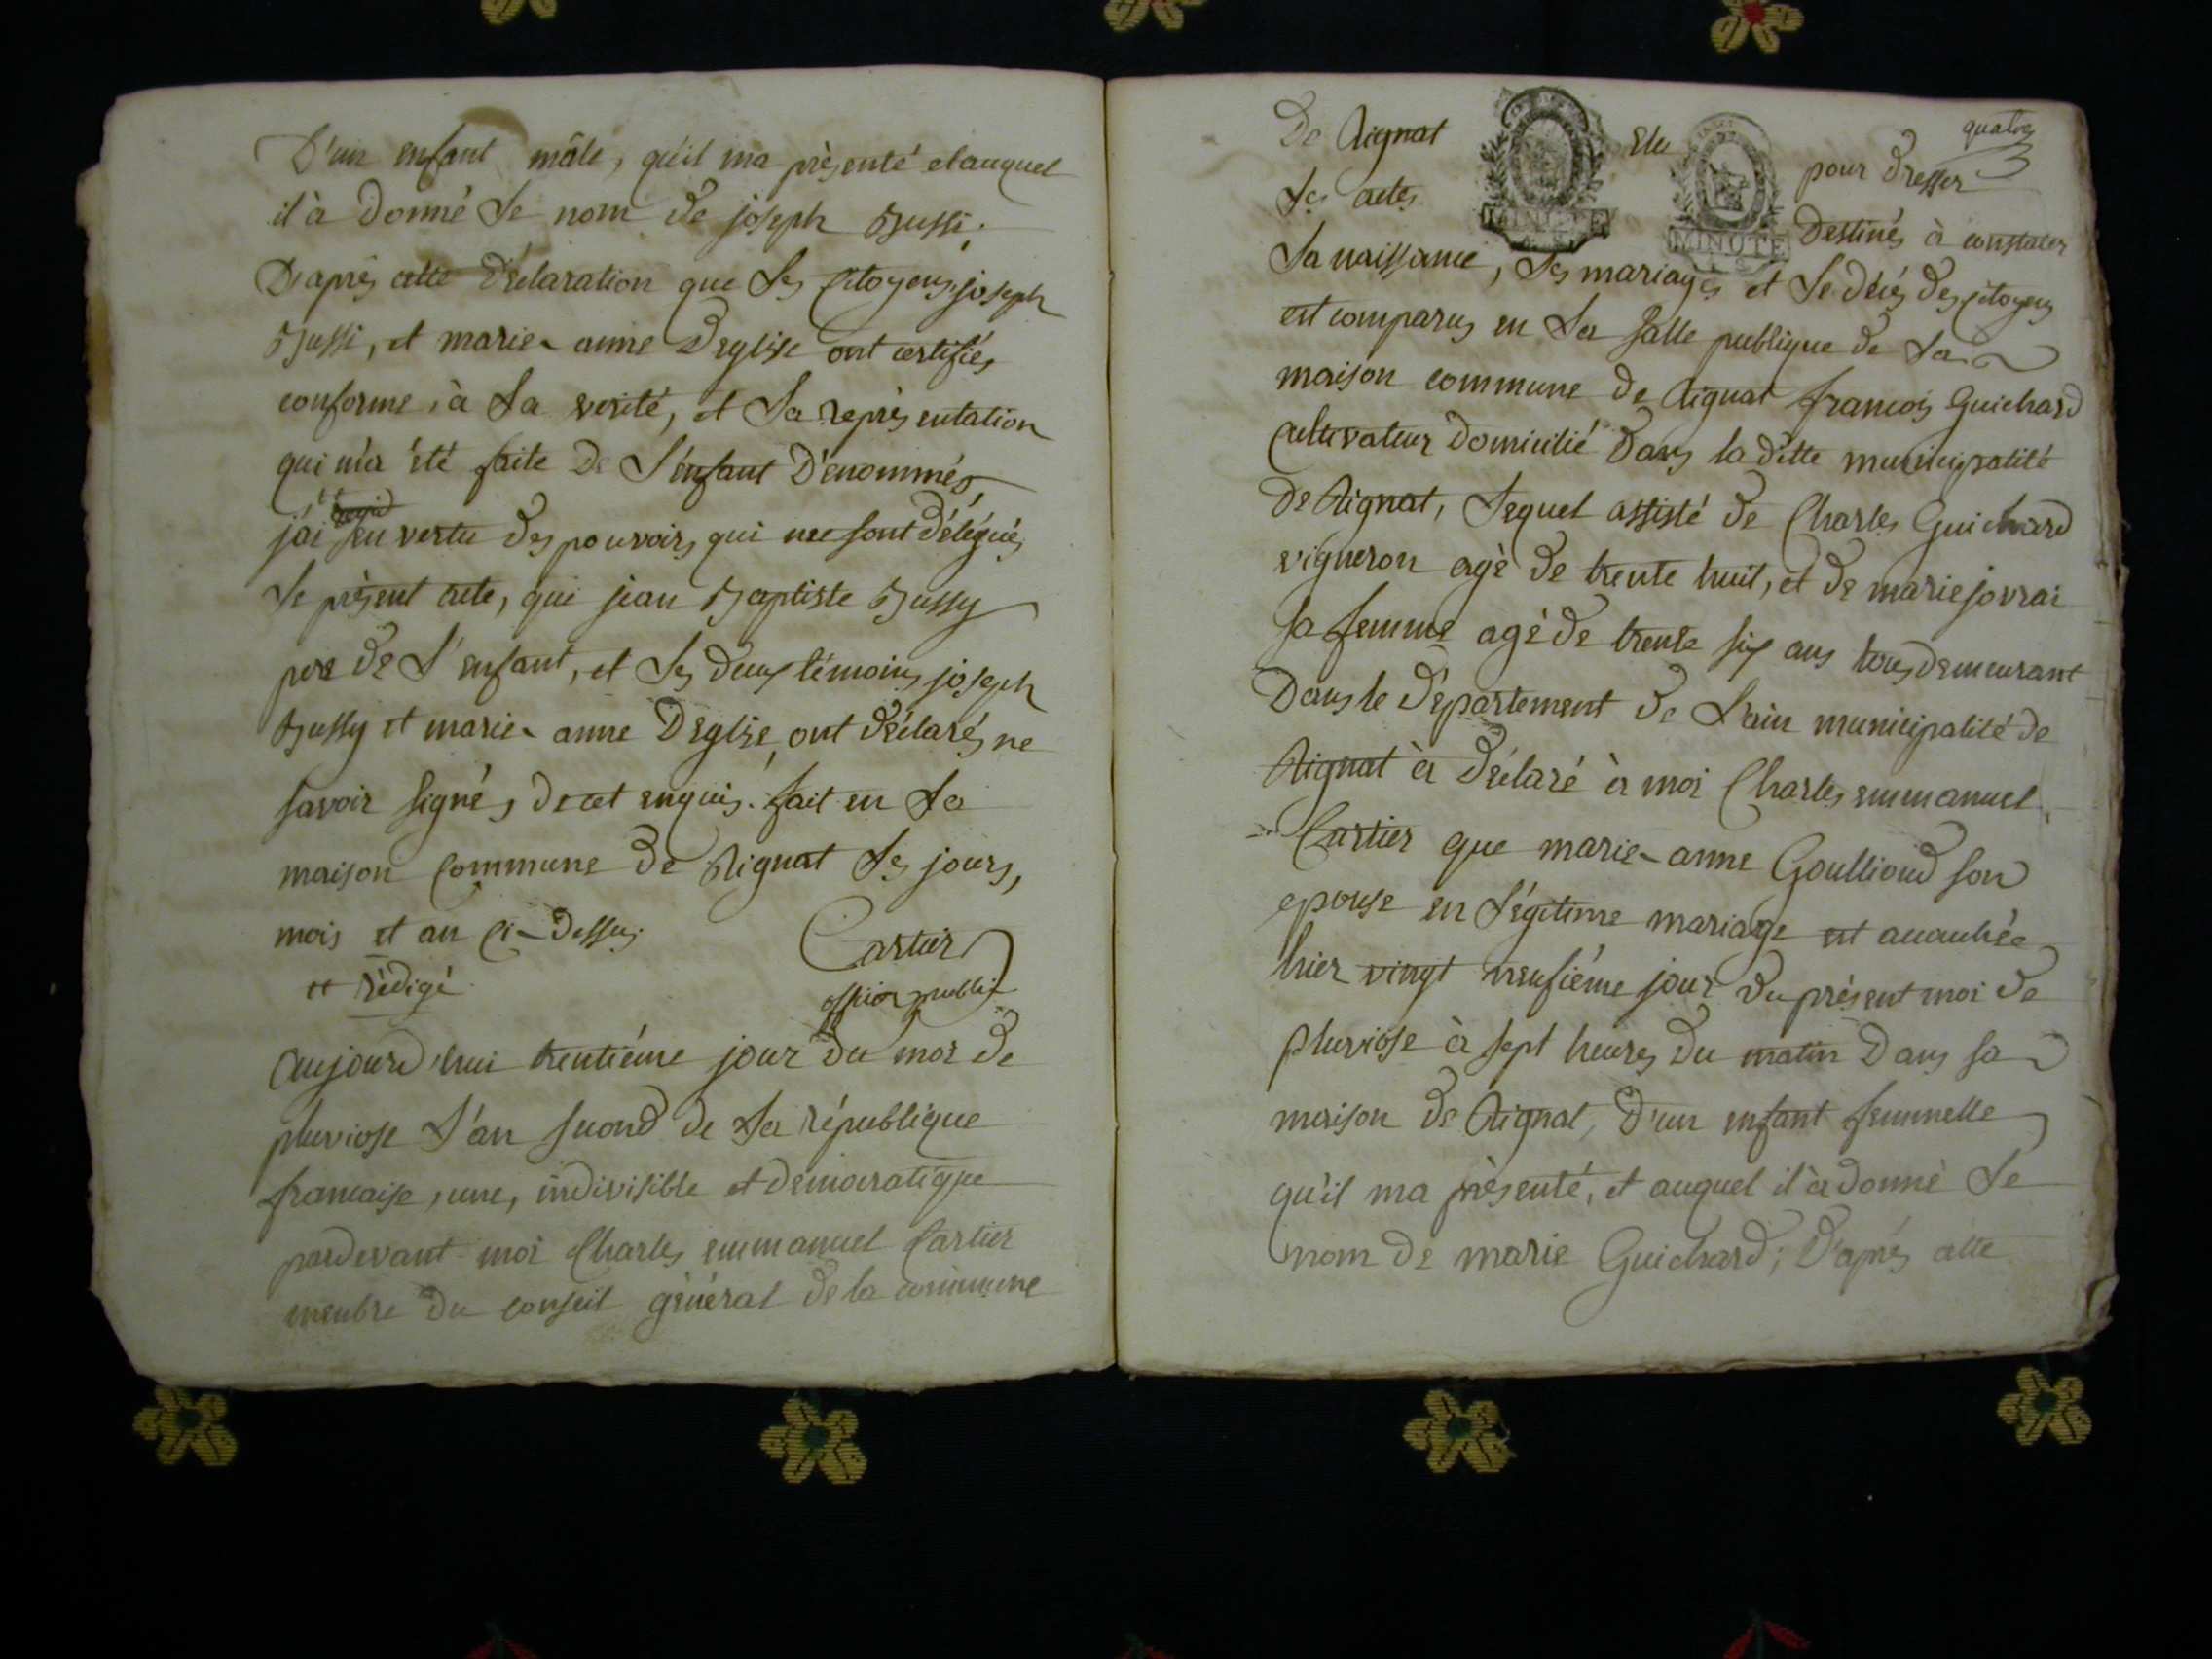 D'un enfant mâle, qu'il ma présenté et auquel
il à donné le nom de joseph Bussi;
D'aprés cette déclaration que les Citoyens joseph
Bussi, et marie-anne Deglise ont certifiés
conforme, à la verité, et la représentation
qui m'a été faite de l'enfant dénommés
j'ai en vertu des pouvoirs qui me sont délégués
le présent acte, que jean Baptiste Bussy
pere de l'enfant, et les deux témoins joseph
Bussy et marie-anne Deglise ont déclarés ne
savoir signés de cet enquis. fait en la
maison Commune de Rignat les jours,
mois et an ci-dessus.
Cartier
officier public
++ rédigé
aujourd'hui trentiéme jour du moi de
pluviose l'an second de la république
francaise, une, indivisible et démocratique
pardevant moi Charles emmanuel Cartier
membre du conseil général de la commune
quatre
De Rignat Elu pour dresser
les actes Destinés à constater
MINUTE
MINUTE
la naissance, les mariages et le décés des citoyens
est comparus en la salle publique de la
maison commune de Rignat francois Guichard
cultivateur domicilié dans la ditte municipalité
de Rignat, lequel assisté de Charles Guichard
vigneron agé de trente huit, et de marie jovrai
sa femme agé de trente six ans tous demeurant
Dans le département de l'ain municipalité de
Rignat à déclaré à moi Charles emmanuel
Cartier que marie-anne Goulliond son
epouse en légitime mariage est accouchée
hier vingt neufiéme jour du présent moi de
pluviose à sept heures du matin Dans sa
maison de Rignat, d'un enfant femmelle
qu'il ma présenté, et auquel il à donné le
nom de marie Guichard; d'aprés cette